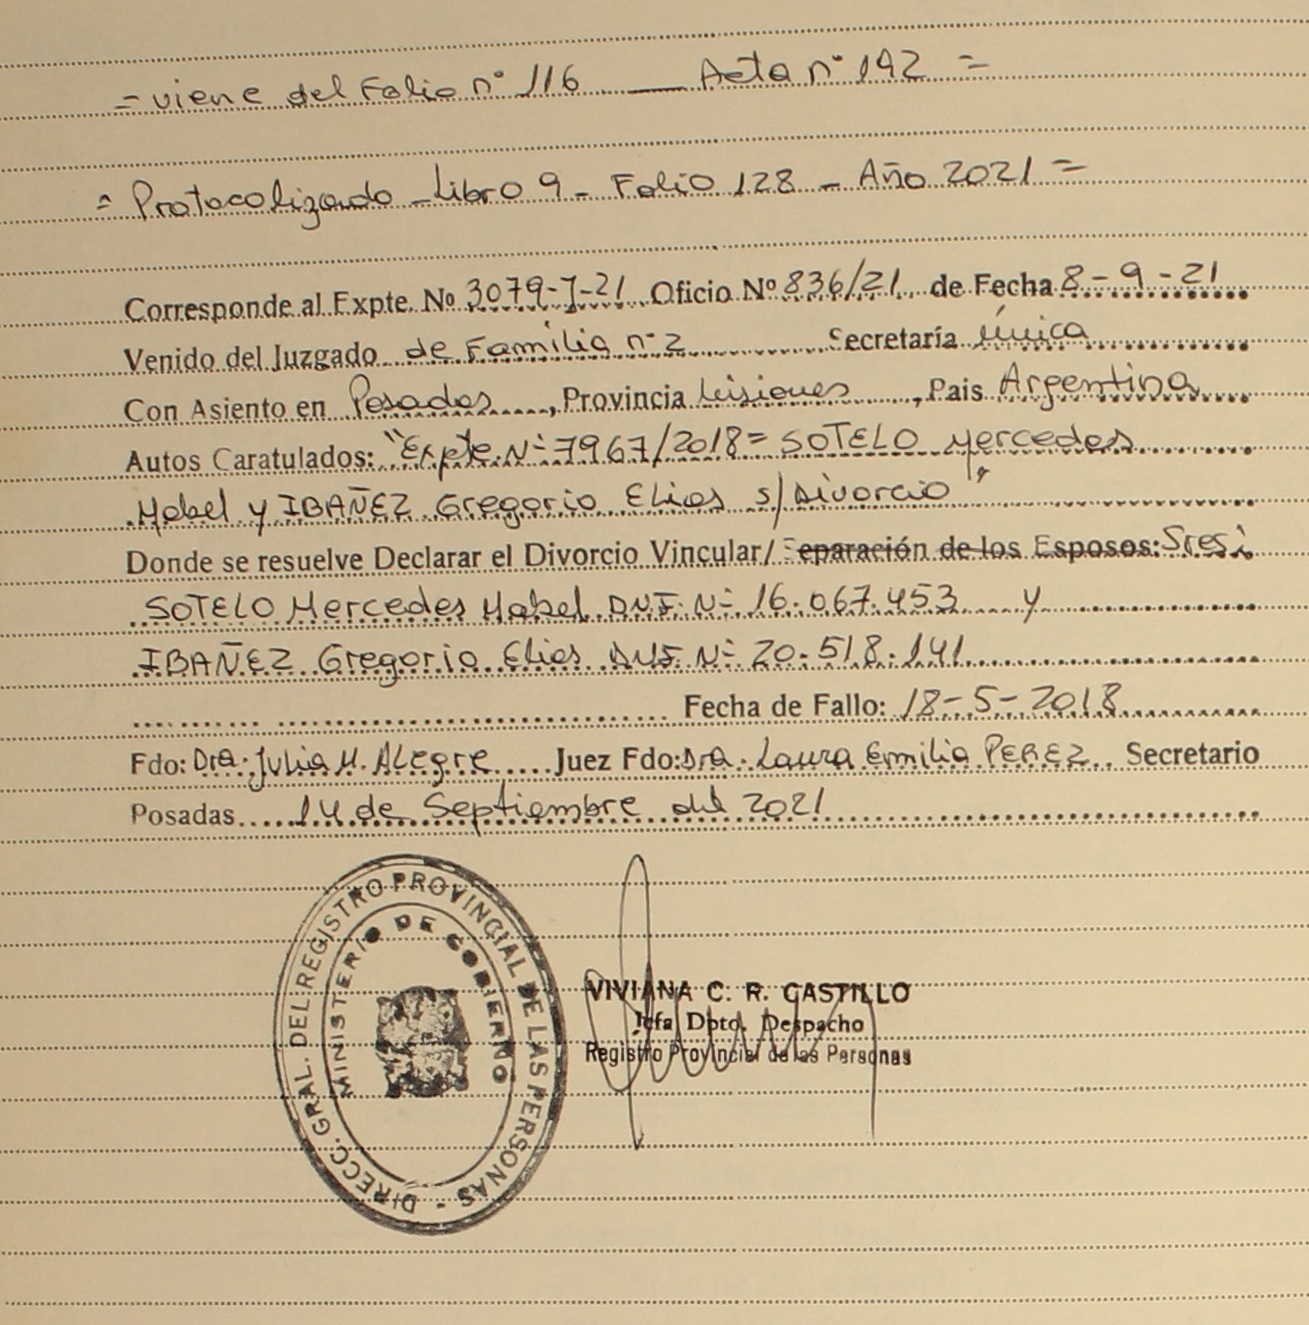 = viene del Folio n° 116 — Acta n° 192 =
= Protocolizado - Libro 9 - Folio 128 - Año 2021 =
Corresponde al Expte. Nº 3079-J-21 Oficio Nº 836/21 de Fecha 8-9-21
Venido del Juzgado de Familia n° 2 Secretaría única
Con Asiento en Posadas, Provincia Misiones, Pais Argentina
Autos Caratulados: "Expte. N° 7967/2018 = SOTELO Mercedes
Mabel y IBAÑEZ Gregorio Elias s/Divorcio"
Donde se resuelve Declarar el Divorcio Vincular/ Separación de los Esposos: Sres:
SOTELO Mercedes Mabel DNI. N° 16.067.453 y
IBAÑEZ Gregorio Elias DNI. N° 20.518.141
Fecha de Fallo: 18-5-2018
Fdo: Dra. Julia M. Alegre Juez Fdo: Dra. Laura Emilia PEREZ Secretario
Posadas 14 de Septiembre del 2021
DIRECC. GRAL. DEL REGISTRO PROVINCIAL DE LAS PERSONAS -
MINISTERIO DE GOBIERNO
VIVIANA C. R. CASTILLO
Jefa Dpto. Despacho
Registro Provincial de las Personas